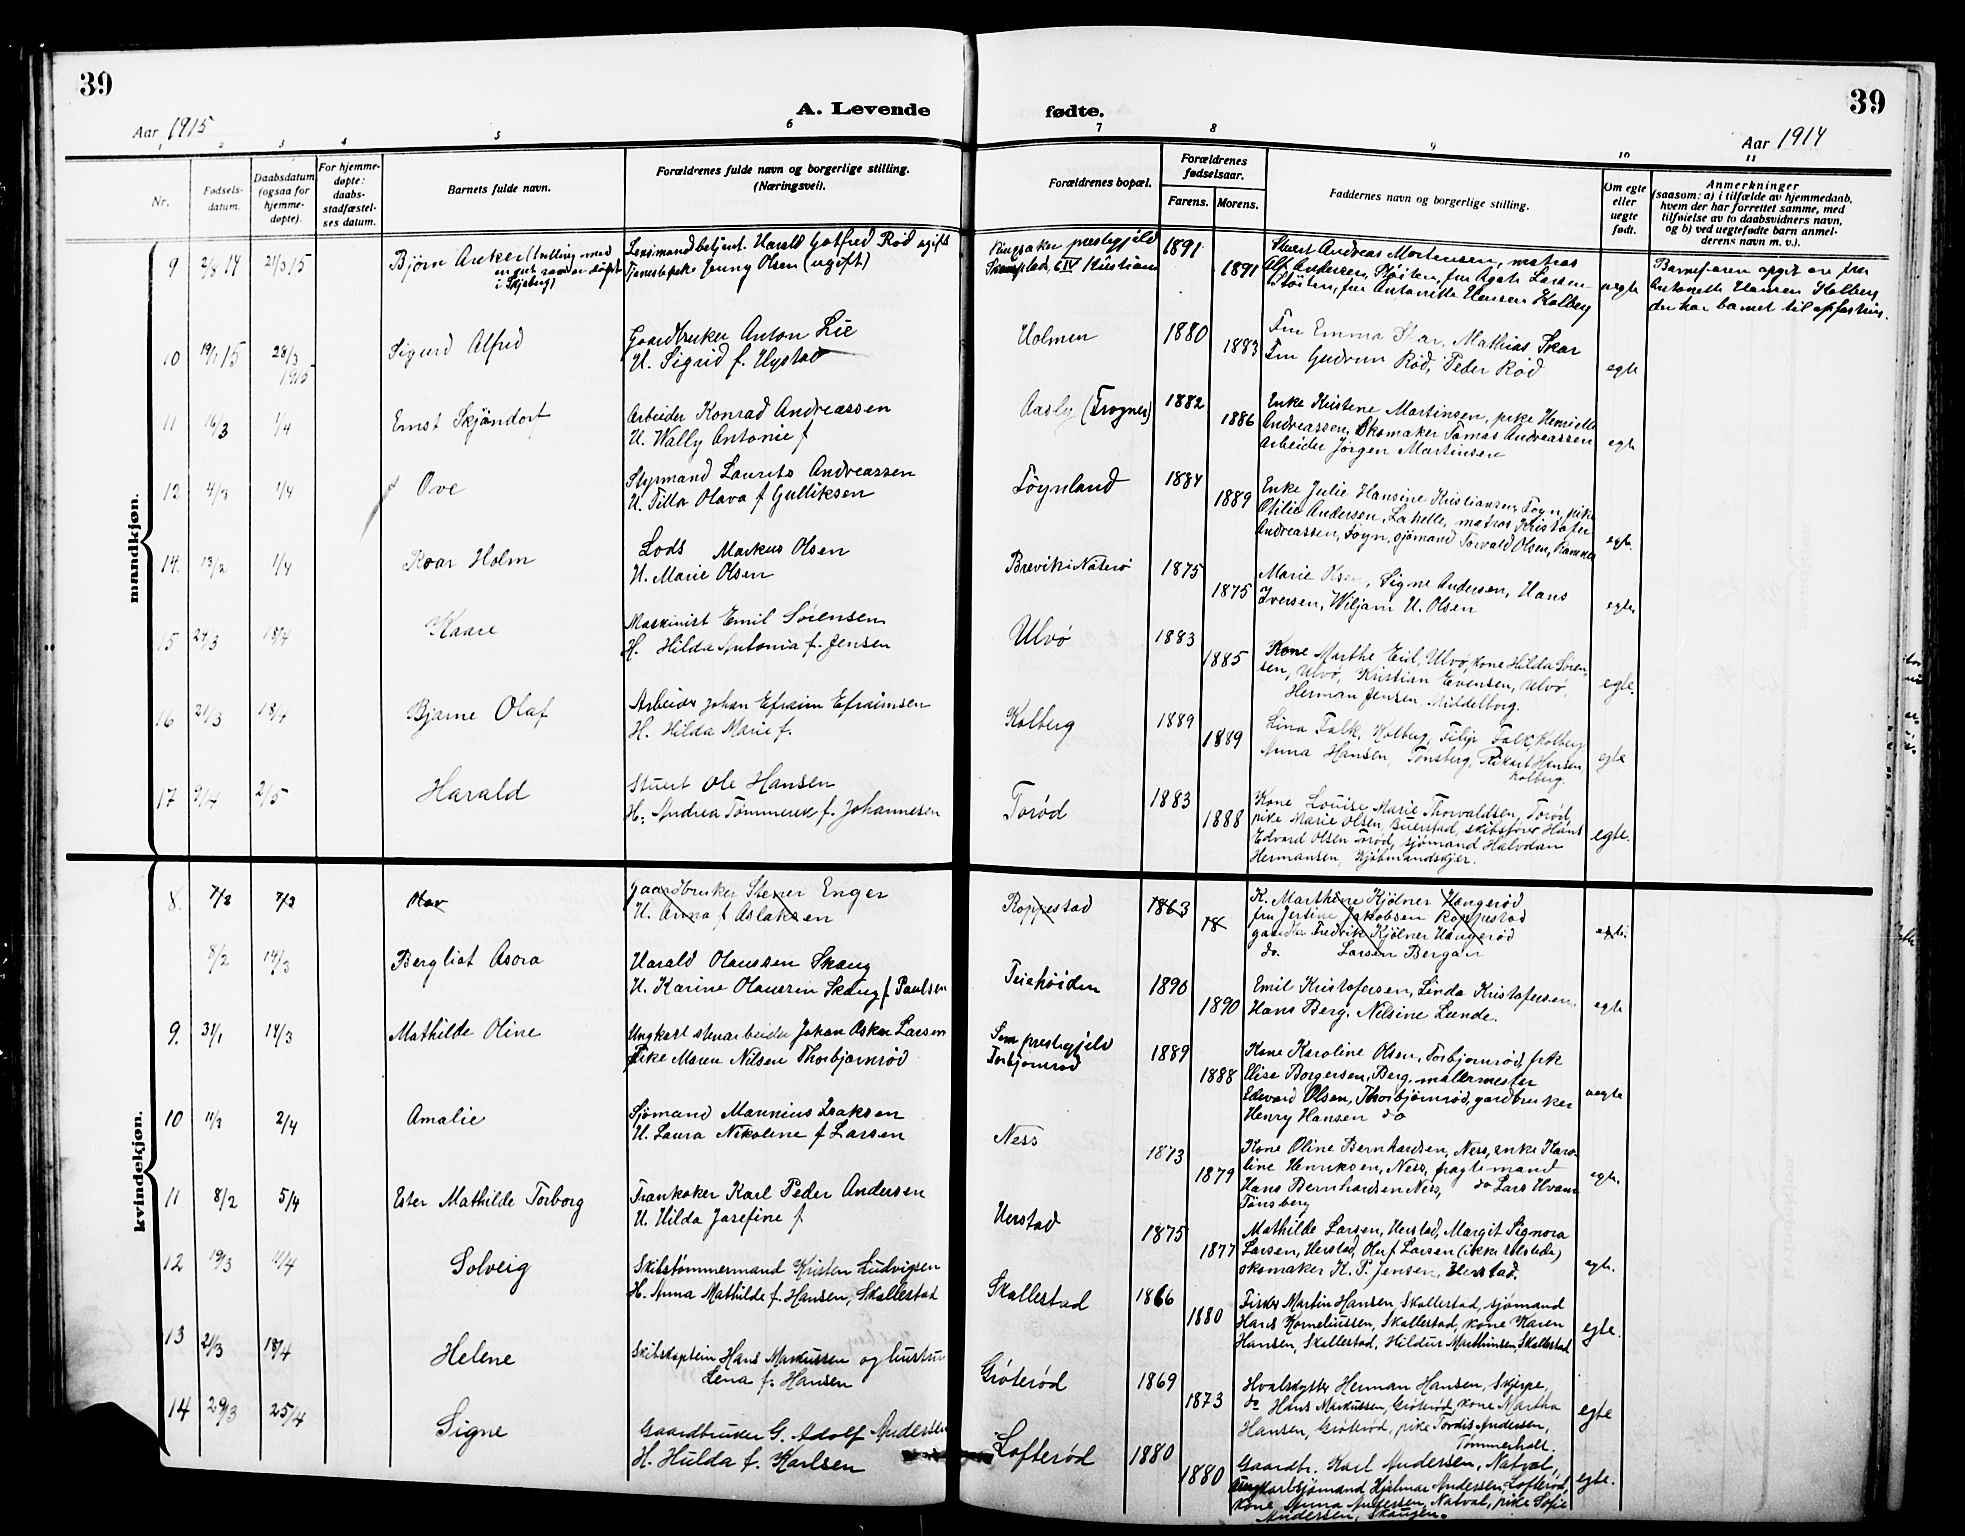 39
39
A. Levende fødte.
Aar 1915
Aar 1914
1 2 3 4 5 6 7 8 9 10 11
Nr.
Fødsels-
datum.
Daabsdatum
(ogsaa for
hjemme-
døpte).
For hjemme-
døpte:
daabs-
stadfæstel-
ses datum.
Barnets fulde navn.
Forældrenes fulde navn og borgerlige stilling.
(Næringsvei).
Forældrenes bopæl.
Forældrenes
fødselsaar.
Farens. Morens.
Faddernes navn og borgerlige stilling.
Om egte
eller
uegte
født.
Anmerkninger
(saasom: a) i tilfælde av hjemmedaab,
hvem der har forrettet samme, med
tilføielse av to daabsvidners navn,
og b) ved uegtefødte barn anmel-
derens navn m. v.).
mandkjøn.
9 2/8 14 21/3 15 Bjørn Anker (tvilling med
en gut som er døpt
i Skjeberg)
Lensmandbetjent Harald Gotfred Rød ugift
Tjenestepike Jenny Olsen (ugift)
Ringsaker prestegjeld
1891
1891
Stuert Andreas Martinsen, matros
Alf Andersen, Støiten, fru Agate Larsen
Støiten, fru Antonette Hansen Kolberg
uegte
Barnefaren opgit av fru
Antonette Hansen Kolberg
der har barnet til opfostring.
10 19/1 15 28/3 1915 Sigurd Alfred
Gaardbruker Anton Lie
H. Sigrid f. Hystad
Holmen 1880
1883
Fru Emma Skar, Mathias Skar
Fru Gudrun Rød, Peder Rød
egte
11 16/3 1/4 Ernst Skjøndorf
Arbeider Konrad Andreassen
H. Wally Antonie f
Aasly (Trogner) 1882
1886
Enke Kristene Martinsen, pike Henriette
Andreassen, Skomaker Tomas Andreassen
Arbeider Jørgen Martinsen
egte
12 4/3 1/4 Ove
Styrmand Laurits Andreassen
H. Tilla Olava f Gulliksen
Føynland 1884
1889
Enke Julie Hansine Kristiansen, Føyn, pike
Otilie Andersen, Lahelle, matros Kristofer
Andreassen, Føyn, sjømand Torvald Olsen, Ramnes
egte.
14. 13/2 1/4 Roar Holm
Lods Markus Olsen
H. Marie Olsen
Brevik i Nøterø 1875
1875
Marie Olsen, Signe Andersen, Hans
Iversen, Wiljam H. Olsen
egte
15 24/3 18/4 Kaare
Maskinist Emil Sørensen
H. Hilda Antonia f. Jensen
Ulvø 1883
1885
Kone Marthe Eid, Ulvø, kone Hilda Søren-
sen, Ulvø, Kristian Evensen, Ulvø,
Herman Jensen Middelborg.
egte.
16 21/3 18/4 Bjarne Olaf
Arbeider Johan Efraim Efraimsen
H. Hilda Marie f.
Kolberg 1889
1889
Lina Falk, Kolberg, Filip Falk, Kolberg
Anna Hansen, Tønsberg, Rikart Hansen
Kolberg.
egte
17 9/4 2/5 Harald
Stuert Ole Hansen
H. Andrea Tømmerek f. Johannesen
Torød 1883
1888
Kone Louise Marie Thorvaldsen, Torød,
pike Marie Olsen, Buerstad, skibsfører Hans
Edvard Olsen Torød, sjømand Halvdan
Hermansen, Kjøbmandskjær.
egte.
kvindekjøn.
8. 7/3 7/3 Olav
Gaardbruker Stener Enger
H. Anna f Aslaksen
Roppestad 1863
18
K. Marthene Kjølner Hangerød
fru Jertine Jakobsen Roppestad
gaardbr Fredrik Kjølner Hangerød
do. Larsen Bergan
egte.
8/2 14/3 Bergliot Asora
Harald Olaussen Skaug
H. Karine Olaussen Skaug f. Paulsen
Teiehøiden 1890
1890
Emil Kristofersen, Linda Kristofersen
Hans Berg, Nilsine Lunde.
egte
9. 31/1 14/3 Mathilde Oline
Ungkarl stuearbeider Johan Oskar Larsen
Pike Maren Nilsen Thorbjørnrød
Sem prestegjeld
Torbjørnrød
1889
1888
Kone Karoline Olsen, Torbjørnrød, pike
Elise Borgersen, Berg, malermester
Edvard Olsen, Thorbjørnrød, gardbruker
Henry Hansen do
uegte
10 11/3 2/4 Amalie
Sjømand Maurinius Isaksen
H. Laura Nikoline f Larsen
Ness 1873
1879
Kone Oline Bernhardsen, Ness, enke Karo-
line Henriksen, Ness, fragtemand
Hans Bernhardsen Ness, do Lars Hvam
Tønsberg
egte.
11 8/2 5/4 Ester Mathilde Torborg
Trankoker Karl Peder Andersen
H. Hilda Josefine f
Herstad 1875
1877
Mathilde Larsen, Herstad, Margit Signora
Larsen, Herstad, Oluf Larsen (ikke tilstede)
skomaker K. P. Jensen, Herstad.
egte.
12 19/3 11/4 Solveig
Skibstømmermand Kristen Ludvigsen
H. Anna Mathilde f. Hansen, Skallestad
Skallestad 1866
1880
Fisker Martin Hansen, Skallestad, sjømand
Hans Korneliussen, Skallestad, kone Karen
Hansen, Skallestad, Hildur Marthinsen, Skallestad
egte.
13 21/3 18/4 Helene
Skibskaptein Hans Markussen og hustru
Lena f. Hansen
Grøterød 1869
1873
Hvalskytter Herman Hansen, Skjerpe,
do Hans Markussen, Grøterød, kone Martha
Hansen, Grøterød, pike Tordis Andersen,
Tømmerholt.
egte
14 29/3 25/4 Signe
Gaardbruker G. Adolf Andersen
H. Hulda f. Karlsen
Lofterød 1880
1880
Gaardbr. Karl Andersen, Natval,
ungkarlsjømand Hjalmar Andersen, Lofterød,
kone Anna Andersen, Natval, pike Sofie
Andersen, Skaugen.
egte.